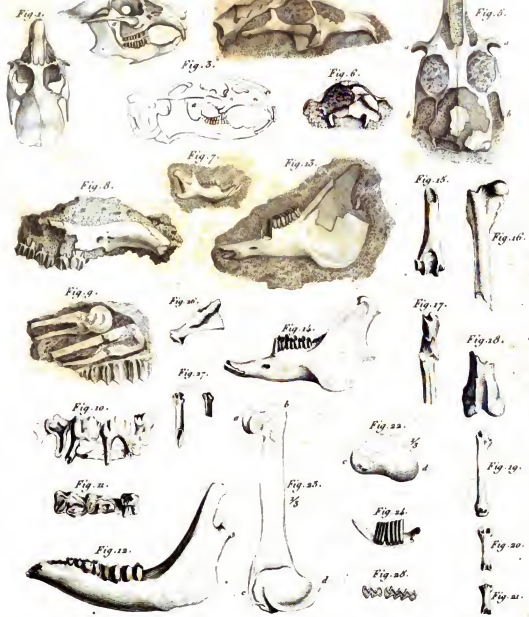 Fig. 1.
Fig. 5.
a
a
b
b
Fig. 3.
Fig. 6.
Fig. 7.
Fig. 13.
Fig. 8.
Fig. 15.
Fig. 16.
Fig. 9.
Fig. 26.
Fig. 14.
Fig. 17.
Fig. 18.
Fig. 27.
Fig. 10.
a
b
Fig. 22.
2/3
c
d
Fig. 19.
Fig. 11.
Fig. 23.
2/3
Fig. 24.
Fig. 12.
c
d
Fig. 20.
Fig. 28.
Fig. 21.